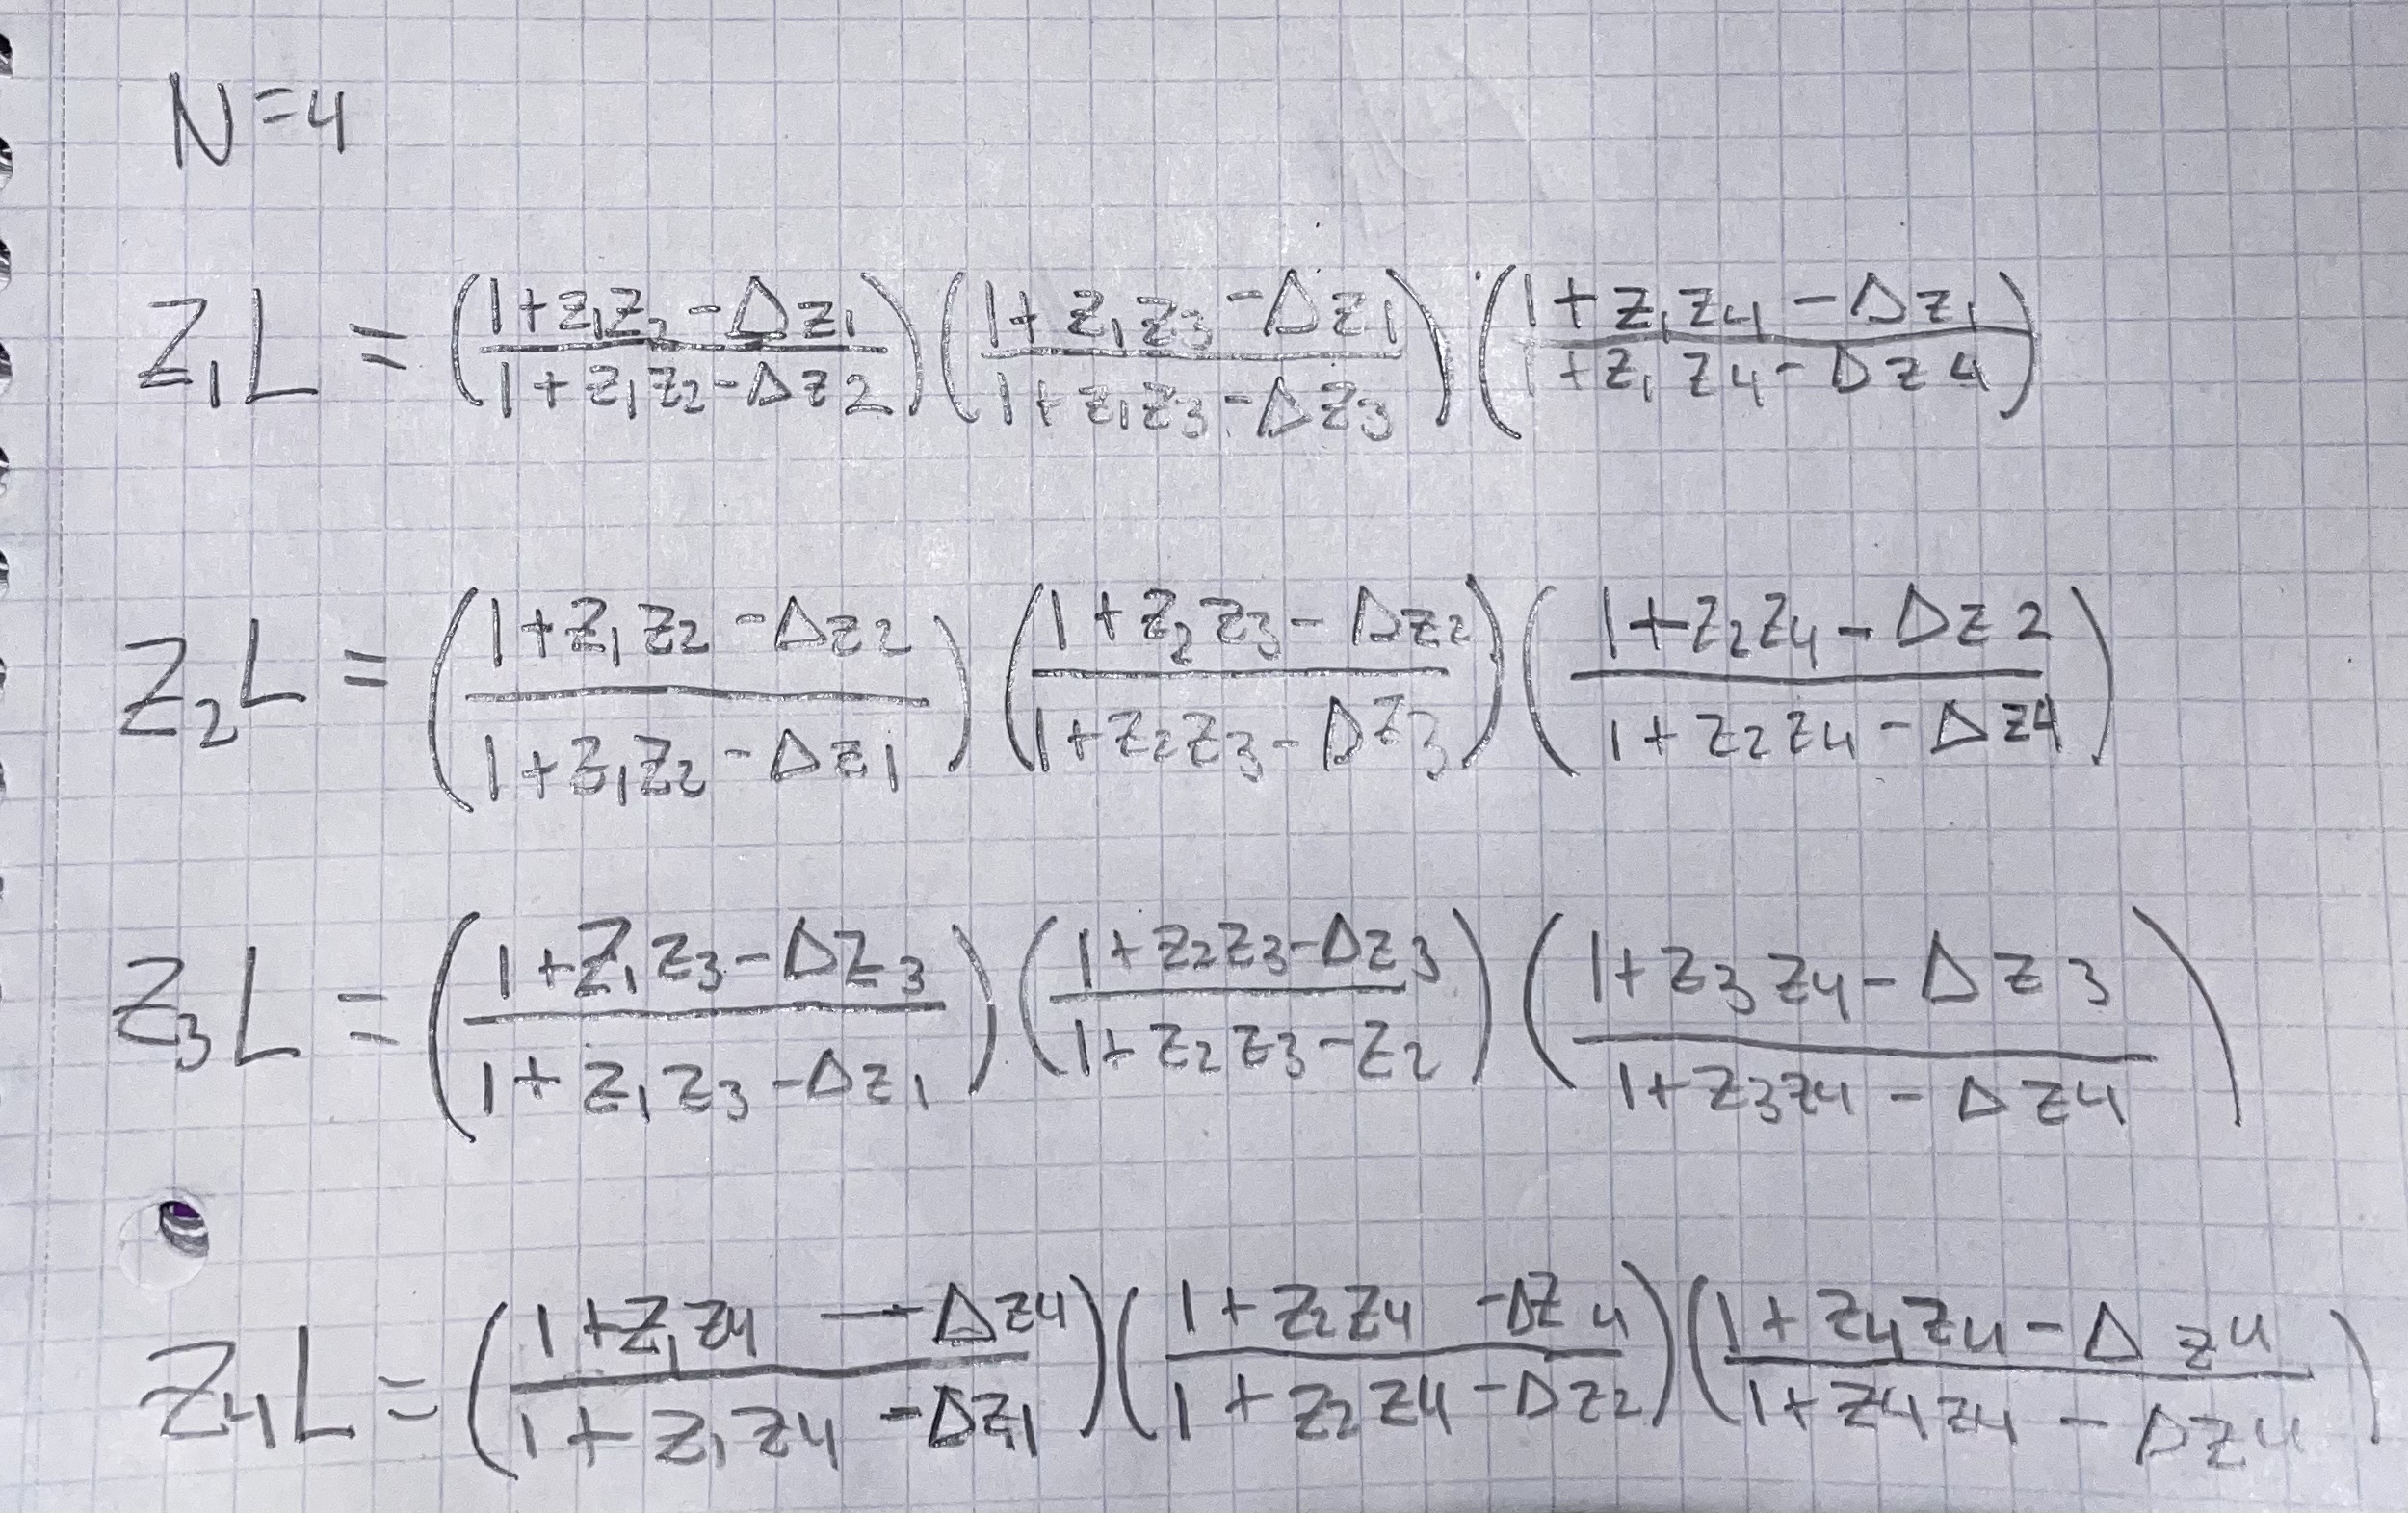 N=4
Z₁L = ((1+z₁z₂-Δz₁)/(1+z₁z₂-Δz2)) ((1+z₁z₃-Δz₁)/(1+z₁z₃-Δz₃)) ((1+z₁z₄-Δz₁)/(1+z₁z₄-Δz4))
Z₂L = ((1+z₁z₂-Δz₂)/(1+z₁z₂-Δz₁)) ((1+z₂z₃-Δz₂)/(1+z₂z₃-Δz₃)) ((1+z₂z₄-Δz2)/(1+z₂z₄-Δz4))
Z₃L = ((1+z₁z₃-Δz₃)/(1+z₁z₃-Δz₁)) ((1+z₂z₃-Δz₃)/(1+z₂z₃-z₂)) ((1+z₃z₄-Δz3)/(1+z₃z₄-Δz₄))
Z₄L = ((1+z₁z₄-Δz₄)/(1+z₁z₄-Δz₁)) ((1+z₂z₄-Δz₄)/(1+z₂z₄-Δz₂)) ((1+z₄z₄-Δz₄)/(1+z₄z₄-Δz₄))